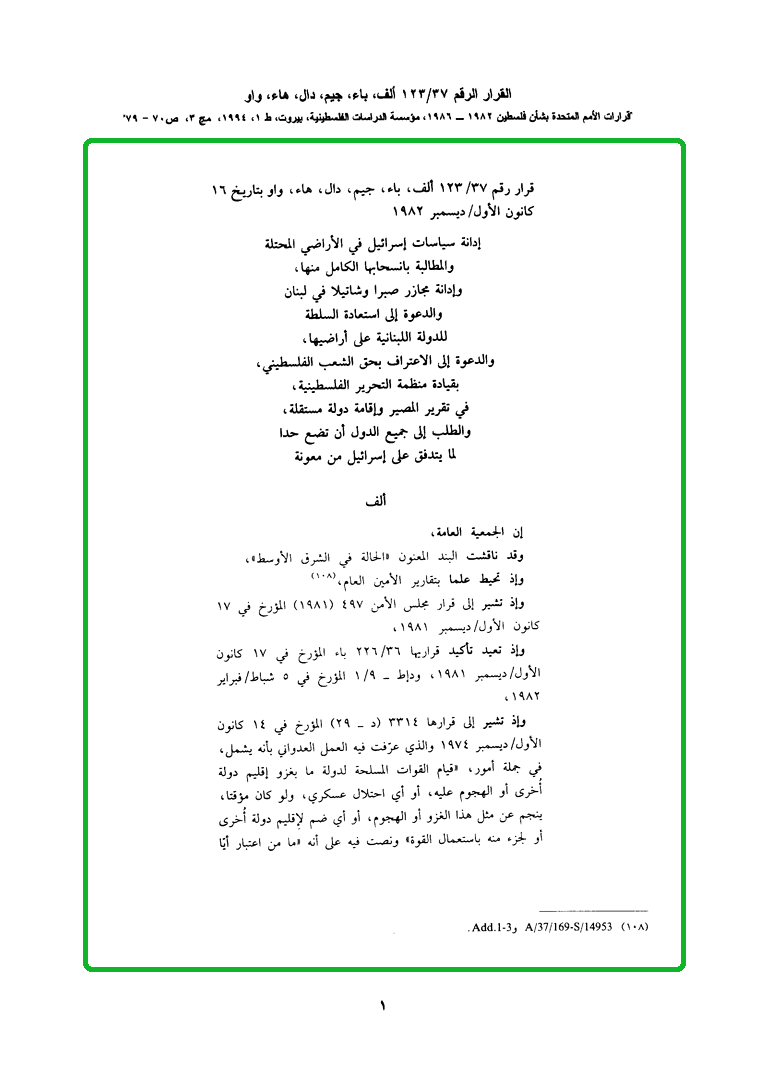 القرار الرقم ١٢٣/٣٧ ألف، باء، جيم، دال، هاء، واو
"قرارات الأمم المتحدة بشأن فلسطين ١٩٨٢ – ١٩٨٦، مؤسسة الدراسات الفلسطينية، بيروت، ط ١، ١٩٩٤، مج ٣، ص ٧٠ – ٧٩"
قرار رقم ١٢٣/٣٧ ألف، باء، جيم، دال، هاء، واو بتاريخ ١٦
كانون الأول/ديسمبر ١٩٨٢
إدانة سياسات إسرائيل في الأراضي المحتلة
والمطالبة بانسحابها الكامل منها،
وإدانة مجازر صبرا وشاتيلا في لبنان
والدعوة إلى استعادة السلطة
للدولة اللبنانية على أراضيها،
والدعوة إلى الاعتراف بحق الشعب الفلسطيني،
بقيادة منظمة التحرير الفلسطينية،
في تقرير المصير وإقامة دولة مستقلة،
والطلب إلى جميع الدول أن تضع حدا
لما يتدفق على إسرائيل من معونة
ألف
إن الجمعية العامة،
وقد ناقشت البند المعنون «الحالة في الشرق الأوسط»،
وإذ تحيط علما بتقارير الأمين العام،(١٠٨)
وإذ تشير إلى قرار مجلس الأمن ٤٩٧ (١٩٨١) المؤرخ في ١٧
كانون الأول/ديسمبر ١٩٨١،
وإذ تعيد تأكيد قراريها ٢٢٦/٣٦ باء المؤرخ في ١٧ كانون
الأول/ديسمبر ١٩٨١، ودإط – ١/٩ المؤرخ في ٥ شباط/فبراير
١٩٨٢،
وإذ تشير إلى قرارها ٣٣١٤ (د – ٢٩) المؤرخ في ١٤ كانون
الأول/ديسمبر ١٩٧٤ والذي عرّفت فيه العمل العدواني بأنه يشمل،
في جملة أمور، «قيام القوات المسلحة لدولة ما بغزو إقليم دولة
أُخرى أو الهجوم عليه، أو أي احتلال عسكري، ولو كان مؤقتا،
ينجم عن مثل هذا الغزو أو الهجوم، أو أي ضم لإقليم دولة أُخرى
أو لجزء منه باستعمال القوة» ونصت فيه على أنه «ما من اعتبار أيّا
(١٠٨) A/37/169-S/14953 وAdd.1-3.
١